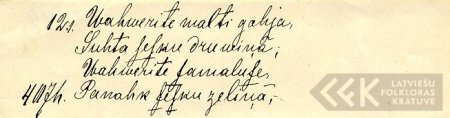 12. Wahwerite malti gahja,
Suhta seſku druwinâ;
Wahwerite ſamaluſe,
4075. Panahk ſeſku zeliņâ,-
LATVIEŠU
FOLKLORAS
KRĀTUVE